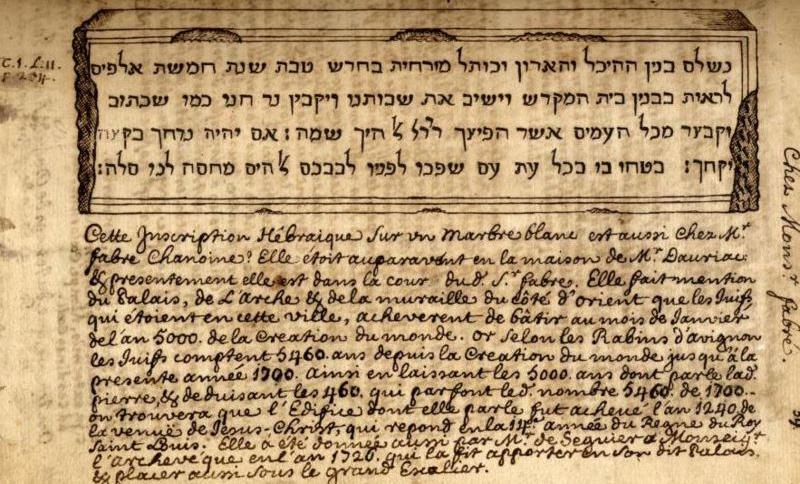 נשלם בנין ההיכל והארון וכותל מזרחית בחדש טבת שנת חמשת אלפים
לראות בבנין בית המקדש וישיב את שבותנו ויקבין נד חנו כמו שכתוב
וקבצך מכל העמים אשר הפיצך אלהיך שמה: אם יהיה נדחך בקצה
יקחך: בטחו בו בכל עת עם שפכו לפניו לבבכם אלהים מחסה לנו סלה:
Cette Inscription Hébraique Sur un Marbre blanc est aussi Chez Mr.
fabre Chanoine. Elle étoit auparavant en la maison de Mr. Dauriac
& presentement elle est dans la cour du d. Sr. fabre. Elle fait mention
du Palais, de L'Arche & de la muraille du côté d'Orient que les Juifs
qui étoient en cette ville, acheverent de bâtir au mois de Janvier
de l'an 5000. de la Creation du monde. Or selon les Rabins d'avignon
les Juiffs comptent 5460. ans depuis la Creation du monde jusqu'à la
presente année 1700. Ainsi en laissant les 5000. ans dont parle lad.
pierre, & deduisant les 460. qui parfont led. nombre 5460. de 1700.
on trouvera que l'Edifice dont elle parle fut acheué l'an 1240. de
la venuë de Jesus-Christ, qui repond en la 14e. année du Regne du Roy
Saint Louis. Elle a été donnée aussi par Mr. de Seguier a Monseigr.
l'Archeveque en l'an 1720. qui la fit apporter en son dit Palais,
& placer aussi sous le grand Escalier.
Chez Monsr. fabre.